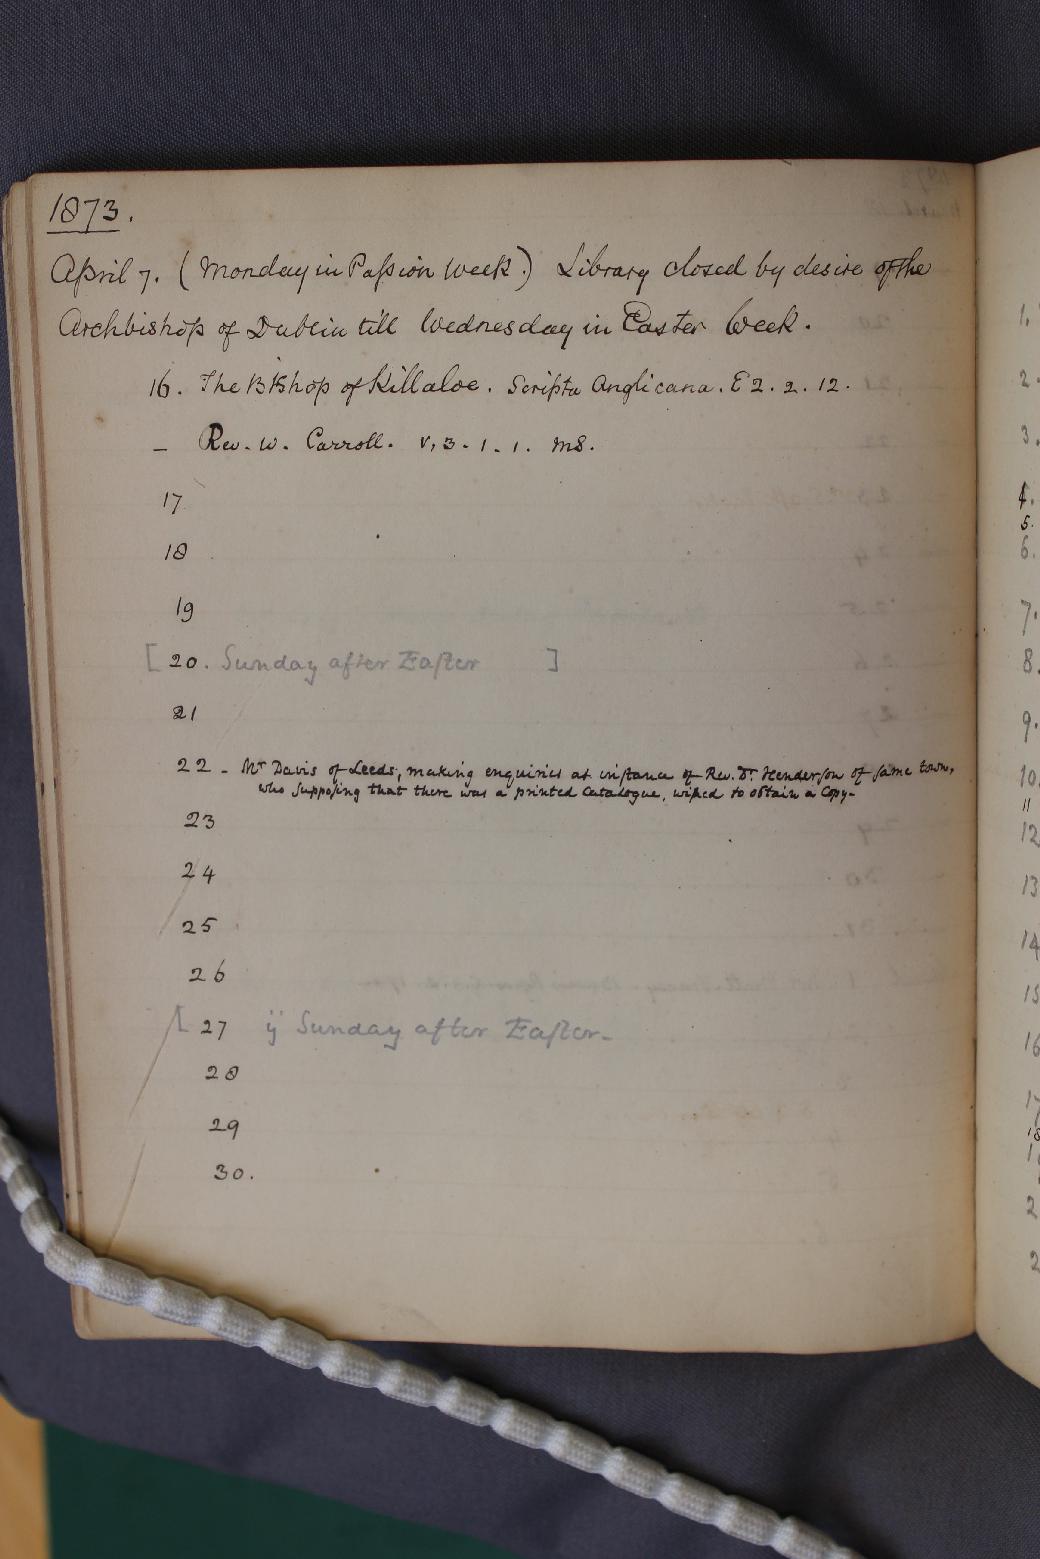 1873.
April 7. (Monday in Paſsion Week.) Library closed by desire of the
Archbishop of Dublin till Wednesday in Easter Week.
16. The Bishop of Killaloe. Scripta Anglicana. E 2. 2. 12.
– Rev. W. Carroll. V, 3. 1. 1. MS.
17
18
19
[ 20. Sunday after Eaſter ]
21
22 - Mr Davis of Leeds, making enquiries at inſtance of Rev. Dr. Henderſon of ſame town,
who ſuppoſing that there was a printed Catalogue, wiſhed to obtain a Copy-
23
24
25
26
[ 27 ij Sunday after Eaſter-
28
29
30.
1.
2.
3.
4.
5.
6.
7.
8.
9.
10.
11
12
13
14
15
16
17
18